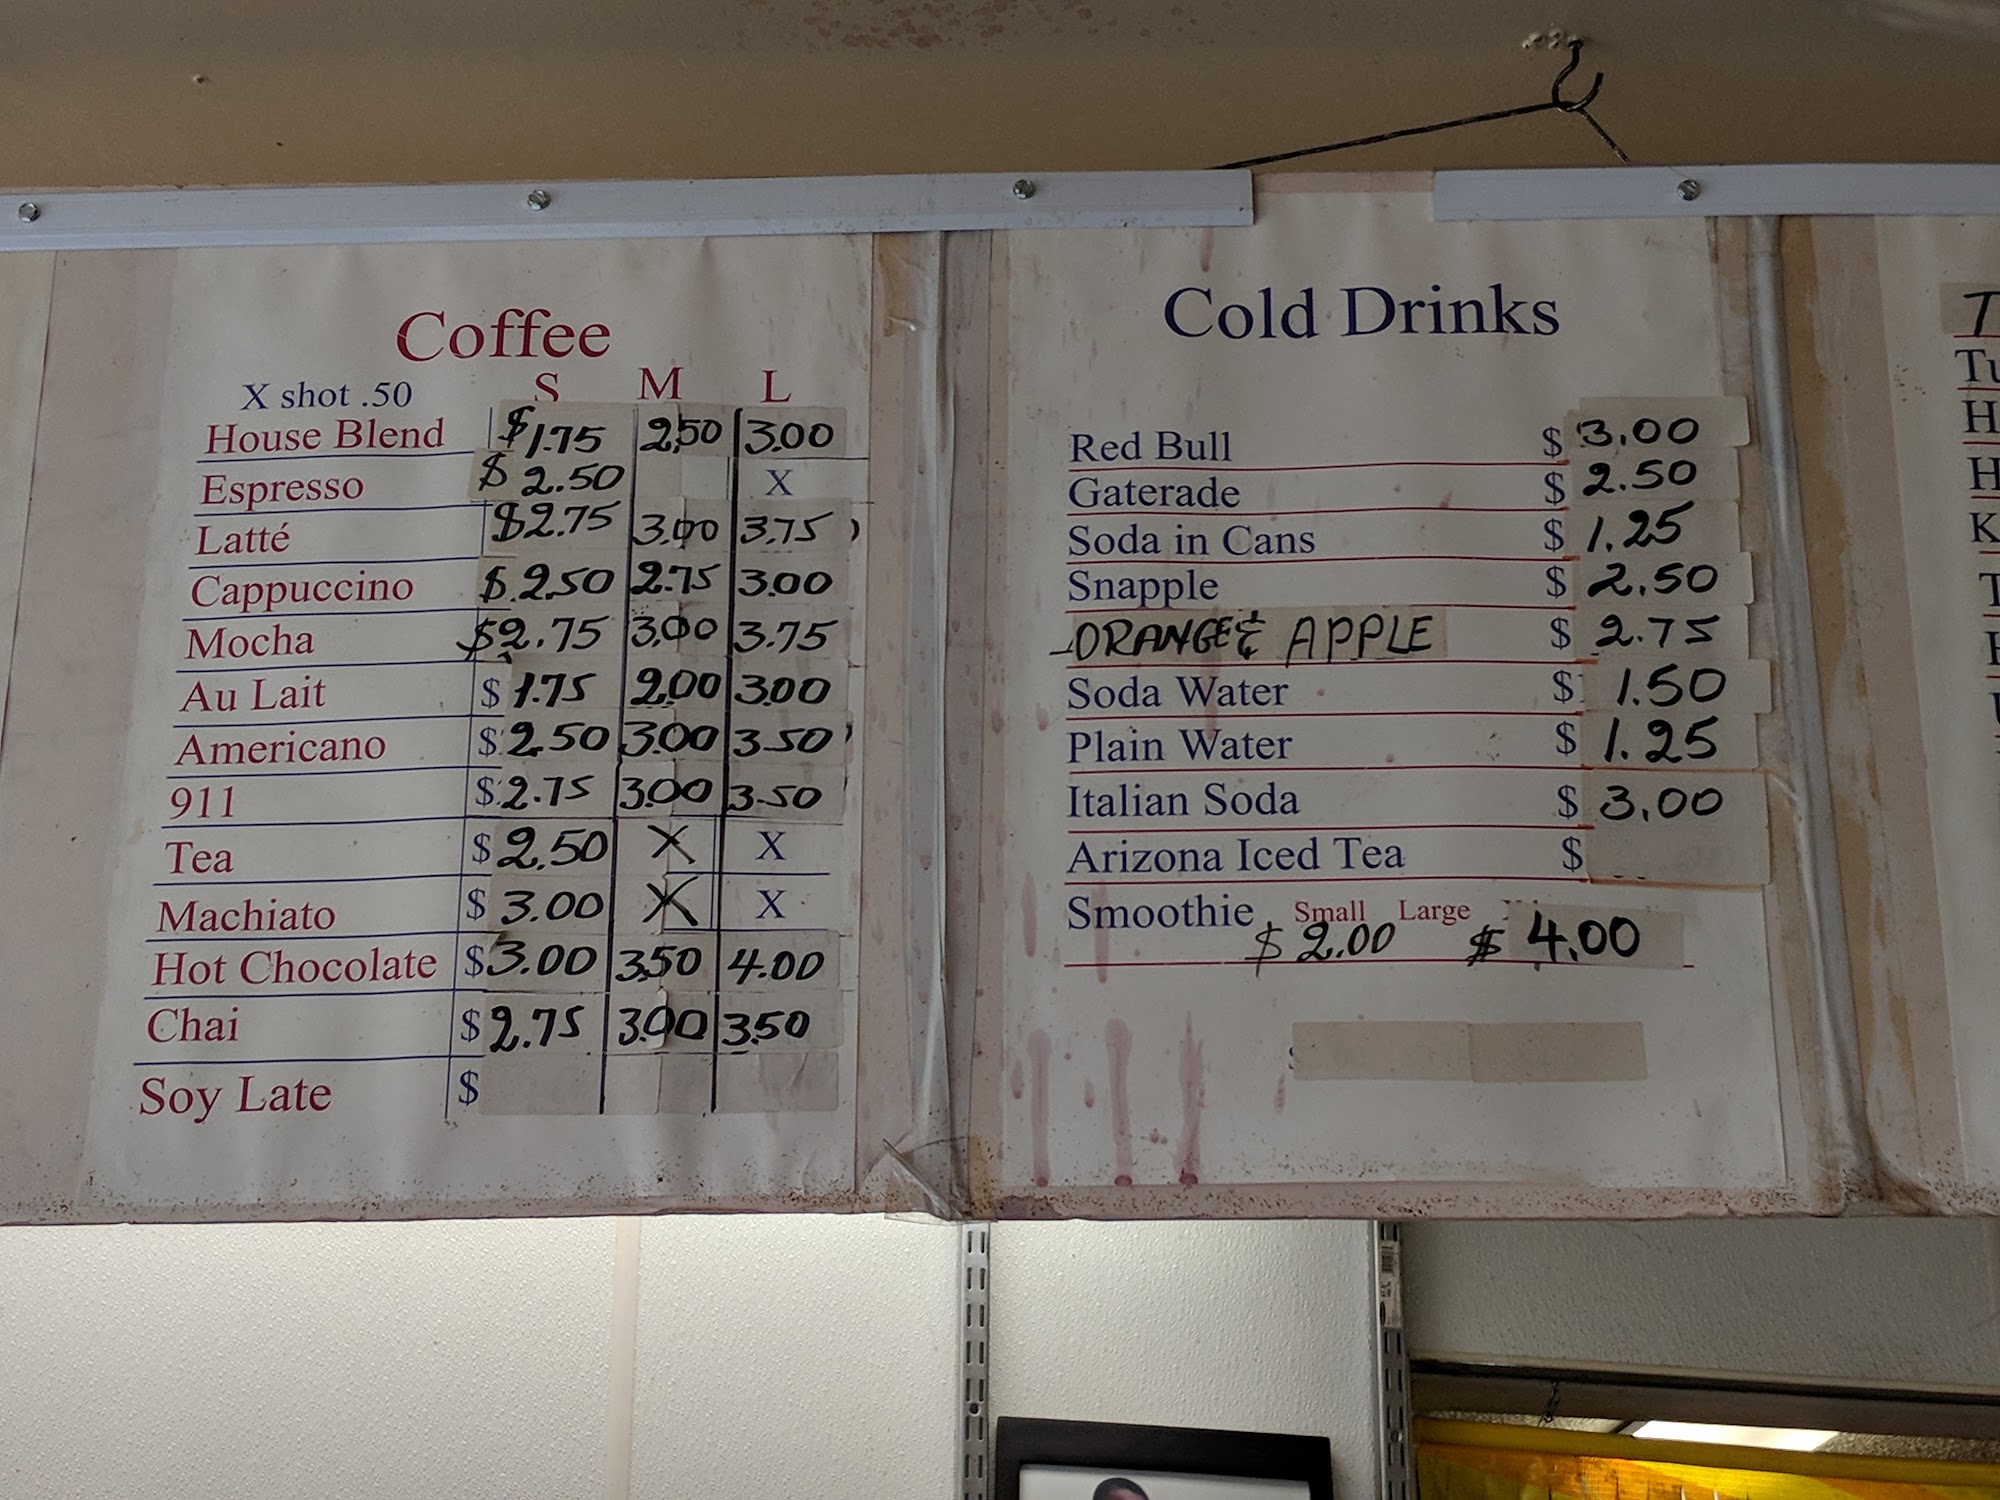 Coffee
X shot .50 S M L
House Blend $1.75 2.50 3.00
Espresso $2.50 X
Latté $2.75 3.00 3.75
Cappuccino $2.50 2.75 3.00
Mocha $2.75 3.00 3.75
Au Lait $1.75 2.00 3.00
Americano $2.50 3.00 3.50
911 $2.75 3.00 3.50
Tea $2.50 X X
Machiato $3.00 X X
Hot Chocolate $3.00 3.50 4.00
Chai $2.75 3.00 3.50
Soy Late $
Cold Drinks
Red Bull $3.00
Gaterade $2.50
Soda in Cans $1.25
Snapple $2.50
ORANGE & APPLE $2.75
Soda Water $1.50
Plain Water $1.25
Italian Soda $3.00
Arizona Iced Tea $
Smoothie Small Large
$2.00 $4.00